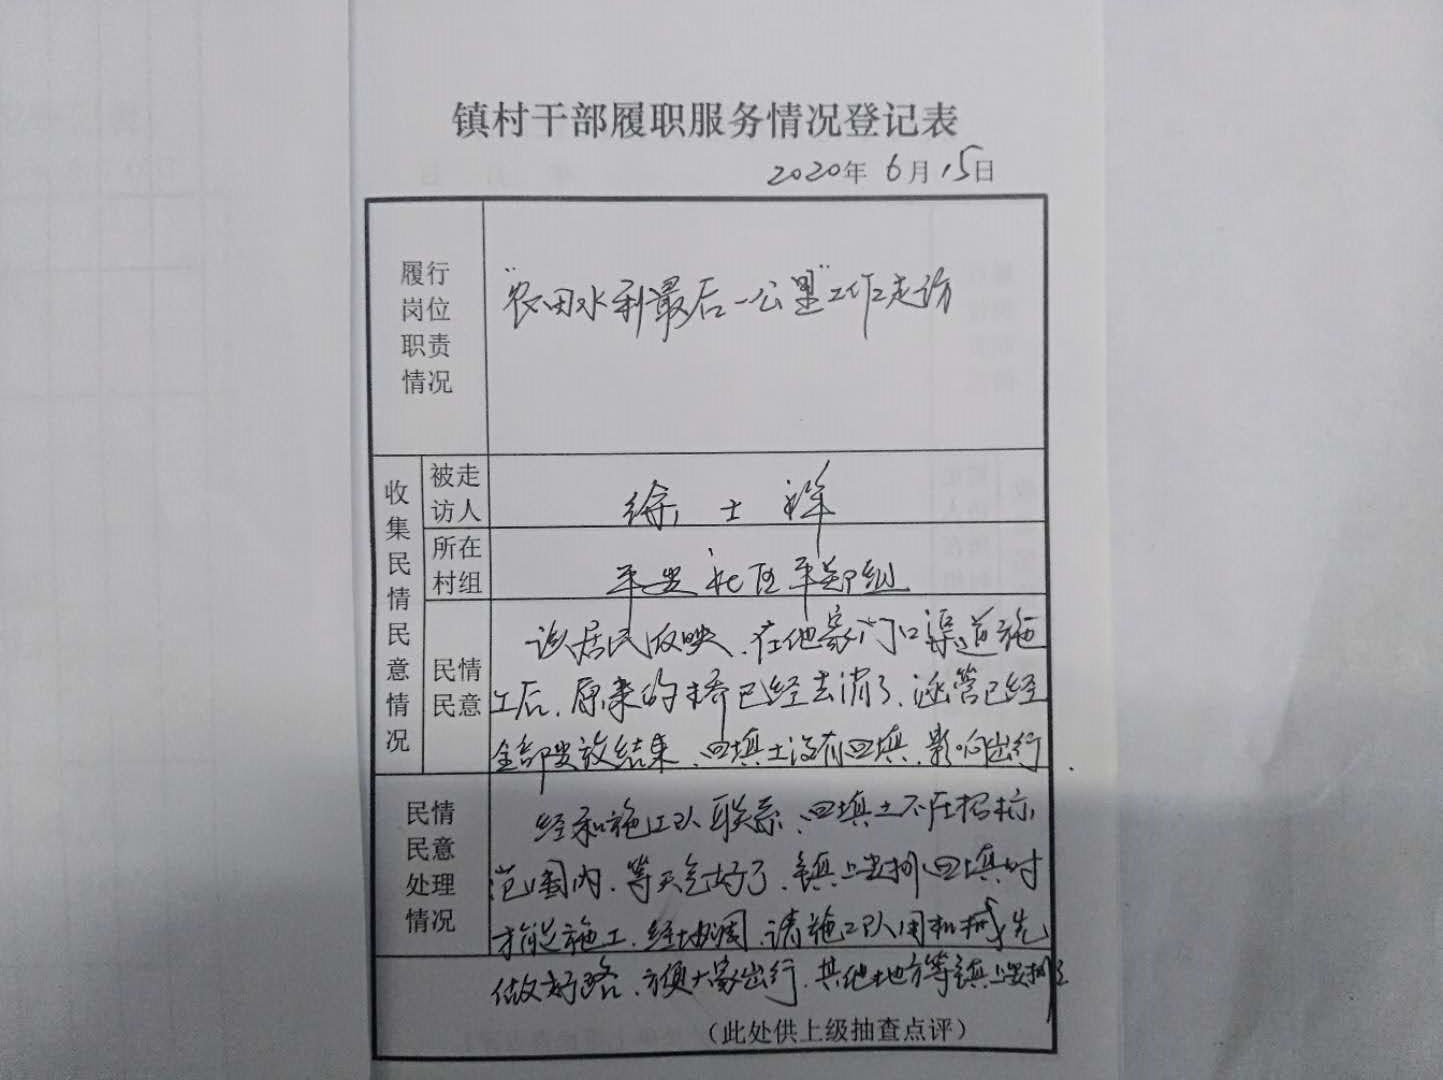 镇村干部履职服务情况登记表
2020年 6月 15日
履行
岗位
职责
情况
"农田水利最后一公里"工作走访
收集民情民意情况
被走
访人
徐 士 祥
所在
村组
平安社区平郑组
民情
民意
该居民反映、在他家门口渠道施
工后、原来的桥已经去消了、涵管已经
全部安放结束、回填土没有回填、影响出行.
民情
民意
处理
情况
经和施工队联系、回填土不在招标
范围内、等天气好了、镇上安排回填时
才能施工、经协调、请施工队用机械先
做好路、方便大家出行、其他地方等镇上安排
(此处供上级抽查点评)